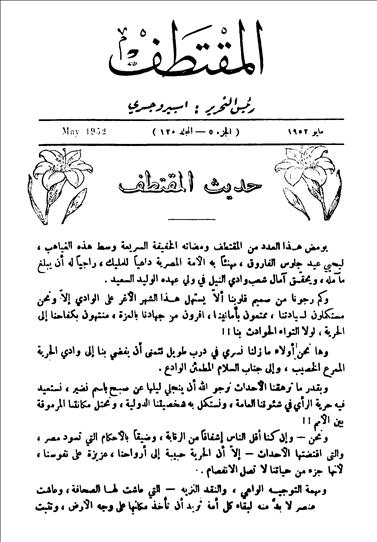 المقتطف
رئيس التحرير : اسبيرو جسري
مايو ١٩٥٢
( الجزء ٥ — المجلد ١٢٠ )
May 1952
حديث المقتطف
يومض هـذا العدد من المقتطف ومضاته الخفيفة السريعة وسط هذه الغياهب ،
ليحيي عيد جلوس الفاروق ، مهنئاً به الأمة المصرية داعياً للمليك ، راجياً له أن يبلغ
مآمله ، ويحقق آمال شعب وادي النيل في ولي عهده الوليد السعيد .
وكم رجونا من صميم قلوبنا ألاَّ يستهل هـذا الشهر الأغر على الوادي إلاّ ونحن
مستكملون لسيادتنا ، متمتعون بأمانينا ، افرون من جهادنا بالعزة ، منتهون بكفاحنا إلى
الحرية ، لولا التواء الحوادث بنا !!
وها نحن أولاء ما زلنا نسري في درب طويل نتمنى أن يفضي بنا إلى وادي الحرية
الممرع الخصيب ، وإلى جناب السلام المطمئن الوادع .
وبقدر ما ترهقنا الأحداث نرجو الله أن ينجلي ليلها عن صبح باسم نضير ، نستعيد
فيه حرية الرأي في شئوننا العامة ، ونستكمل به شخصيتنا الدولية ، ونحتل مكانتنا المرموقة
بين الأمم !!
ونحن — وإن كنا أقل الناس إشفاقاً من الرقابة ، وضيقاً بالأحكام التي تسود مصر ،
والتي اقتضتها الأحداث — إلاّ أن الحرية حبيبة إلى أرواحنا ، عزيزة على نفوسنا ،
لأنها جزء من حياتنا لا تصل الانفصام .
ومهمة التوجيـه الواعي ، والنقد النزيه — التي عاشت لهـا الصحافة ، وعاشت
عنصر لا بدَّ منه لبقاء كل أمة تريد أن تأخذ مكانها على وجه الأرض ، وتثبت